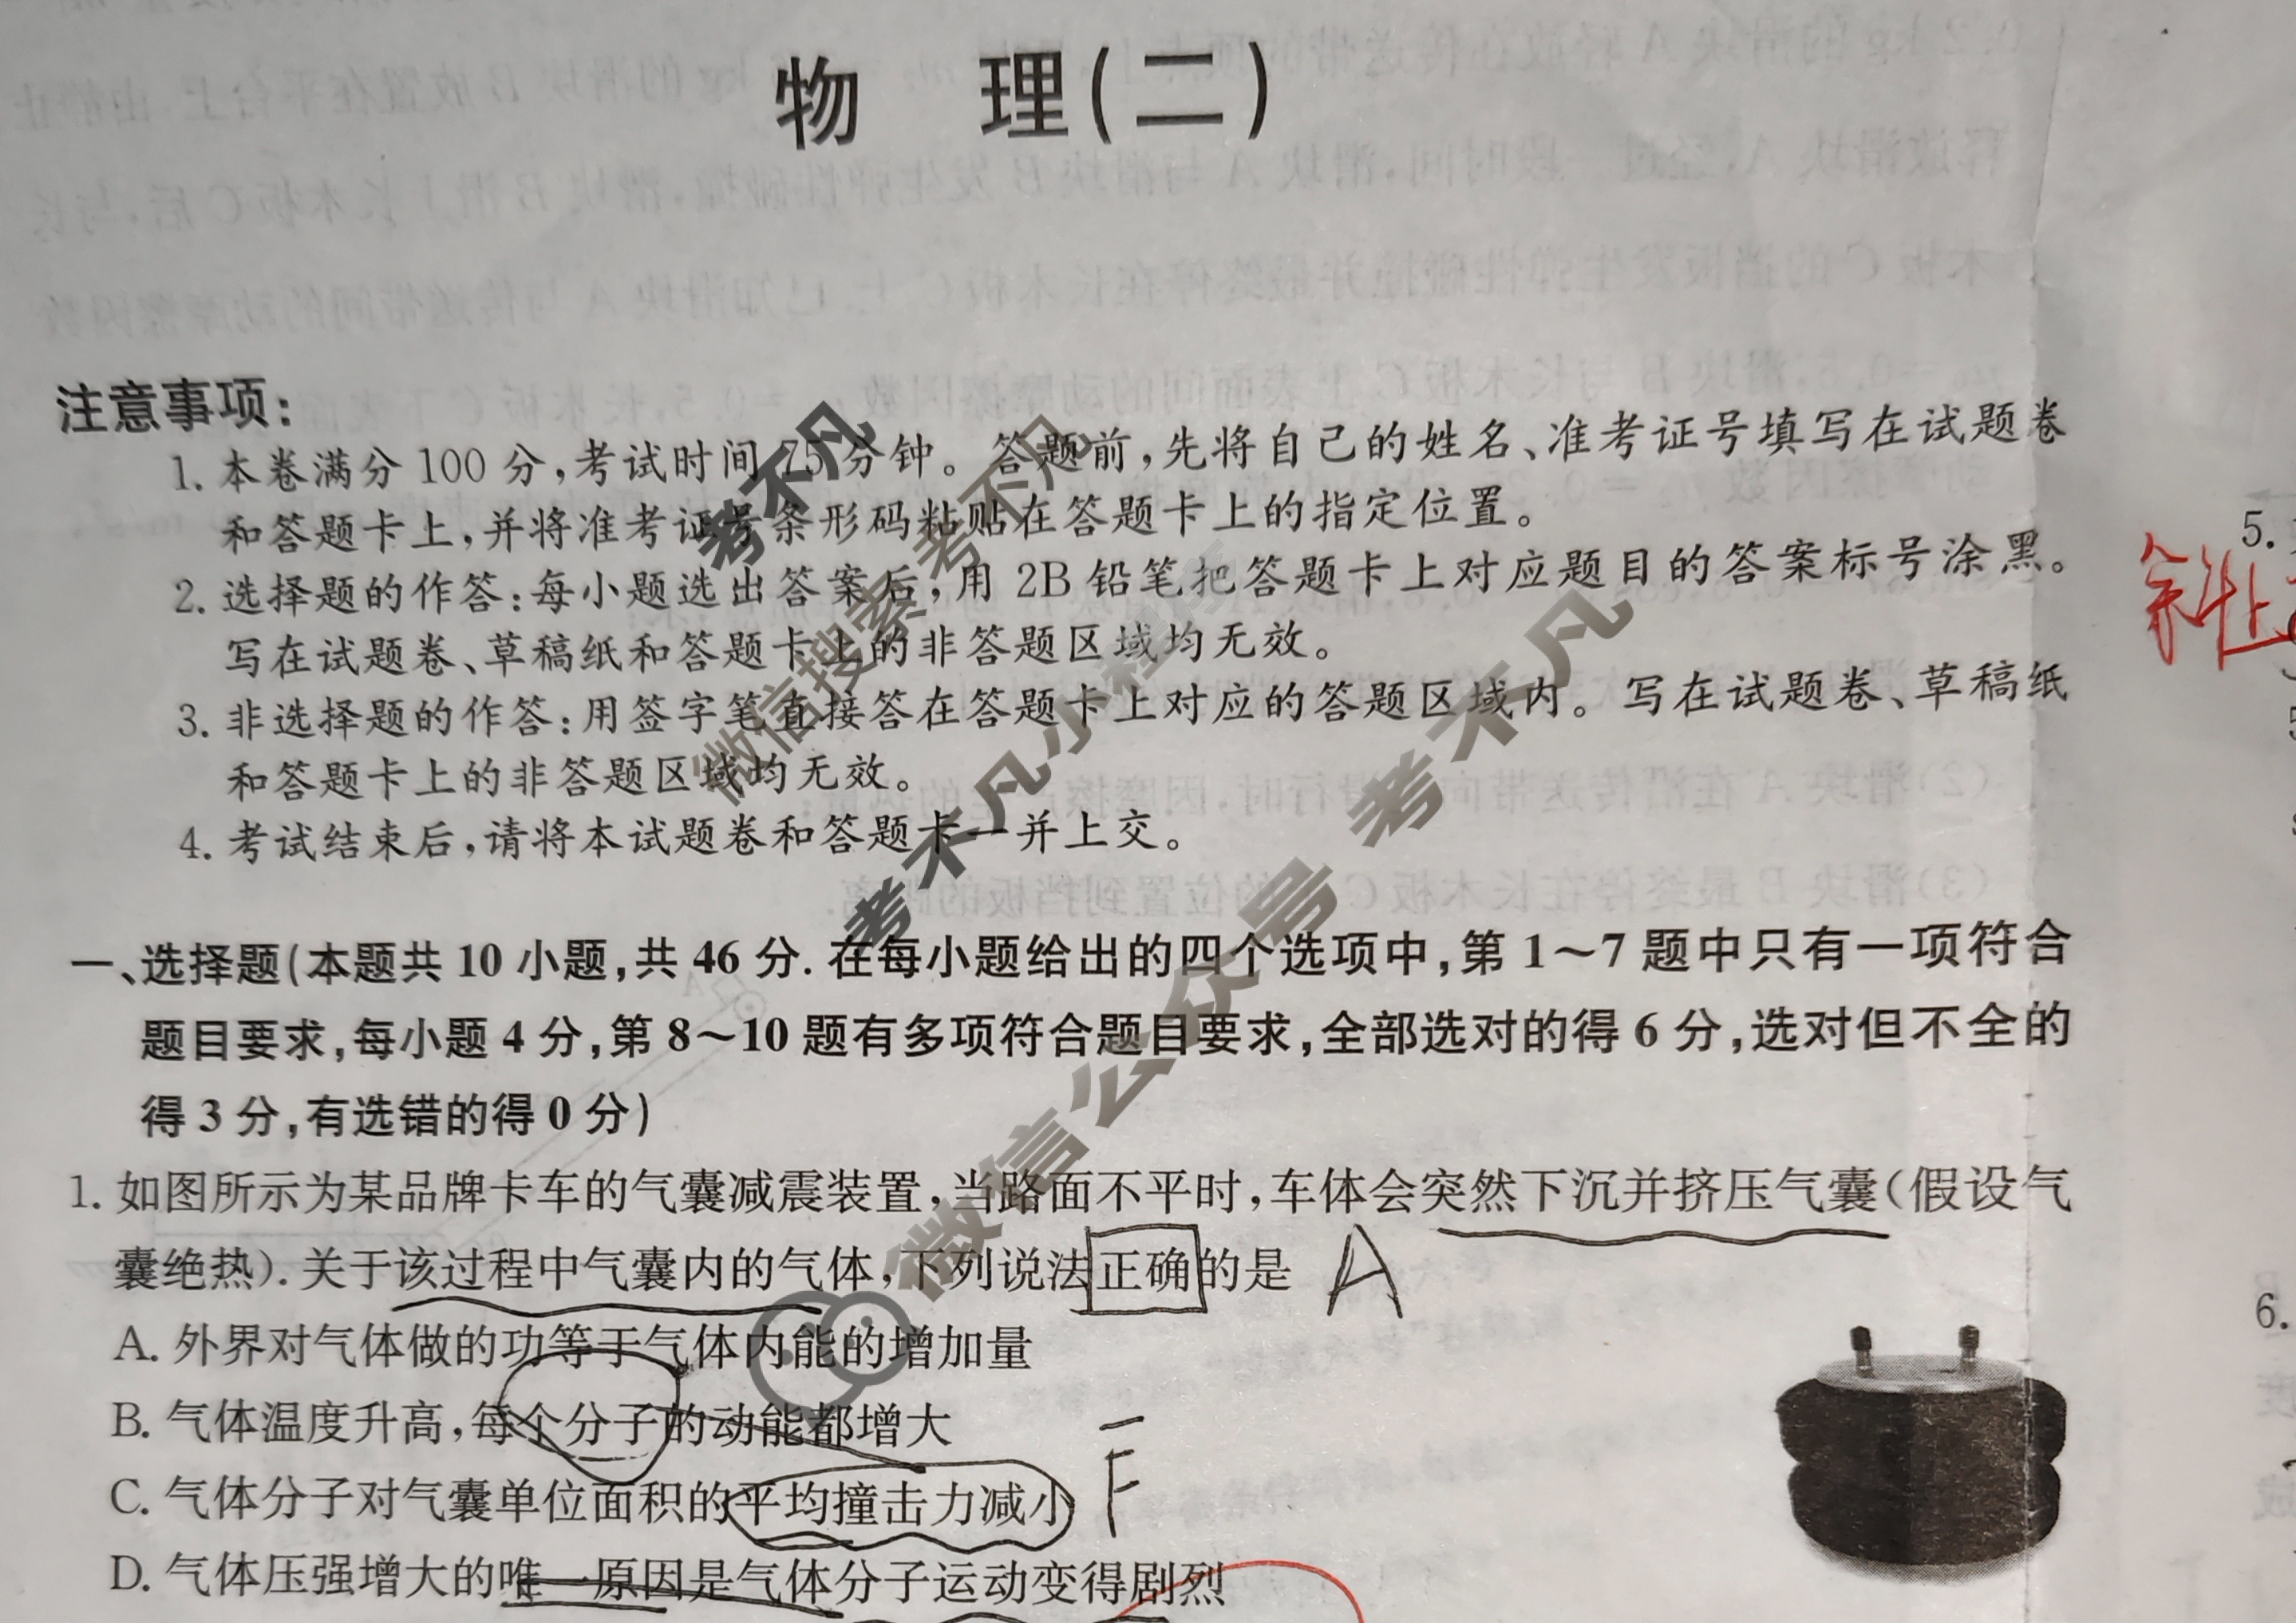 物 理(二)
注意事项:
1. 本卷满分 100 分,考试时间 75 分钟。答题前,先将自己的姓名、准考证号填写在试题卷
和答题卡上,并将准考证号条形码粘贴在答题卡上的指定位置。
2. 选择题的作答:每小题选出答案后,用 2B 铅笔把答题卡上对应题目的答案标号涂黑。
写在试题卷、草稿纸和答题卡上的非答题区域均无效。
3. 非选择题的作答:用签字笔直接答在答题卡上对应的答题区域内。写在试题卷、草稿纸
和答题卡上的非答题区域均无效。
4. 考试结束后,请将本试题卷和答题卡一并上交。
一、选择题(本题共 10 小题,共 46 分. 在每小题给出的四个选项中,第 1~7 题中只有一项符合
题目要求,每小题 4 分,第 8~10 题有多项符合题目要求,全部选对的得 6 分,选对但不全的
得 3 分,有选错的得 0 分)
1. 如图所示为某品牌卡车的气囊减震装置,当路面不平时,车体会突然下沉并挤压气囊(假设气
囊绝热). 关于该过程中气囊内的气体,下列说法正确的是 A
A. 外界对气体做的功等于气体内能的增加量
B. 气体温度升高,每个分子的动能都增大
C. 气体分子对气囊单位面积的平均撞击力减小 F
D. 气体压强增大的唯一原因是气体分子运动变得剧烈
5.
斜上
6.
考不凡
微信搜索 考不凡
考不凡小程序
微信公众号 考不凡